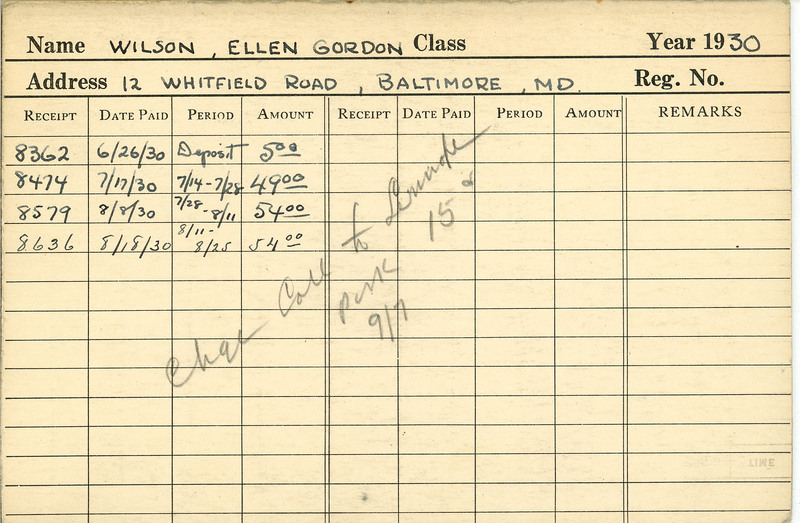 Name WILSON, ELLEN GORDON Class Year 1930
Address 12 WHITFIELD ROAD, BALTIMORE, MD. Reg. No.
RECEIPT DATE PAID PERIOD AMOUNT RECEIPT DATE PAID PERIOD AMOUNT REMARKS
8362 6/26/30 Deposit 5.00
8474 7/17/30 7/14-7/28 49.00
8579 8/8/30 7/28-8/11 54.00
8636 8/18/30 8/11-8/25 54.00
to
15
Park
9/7